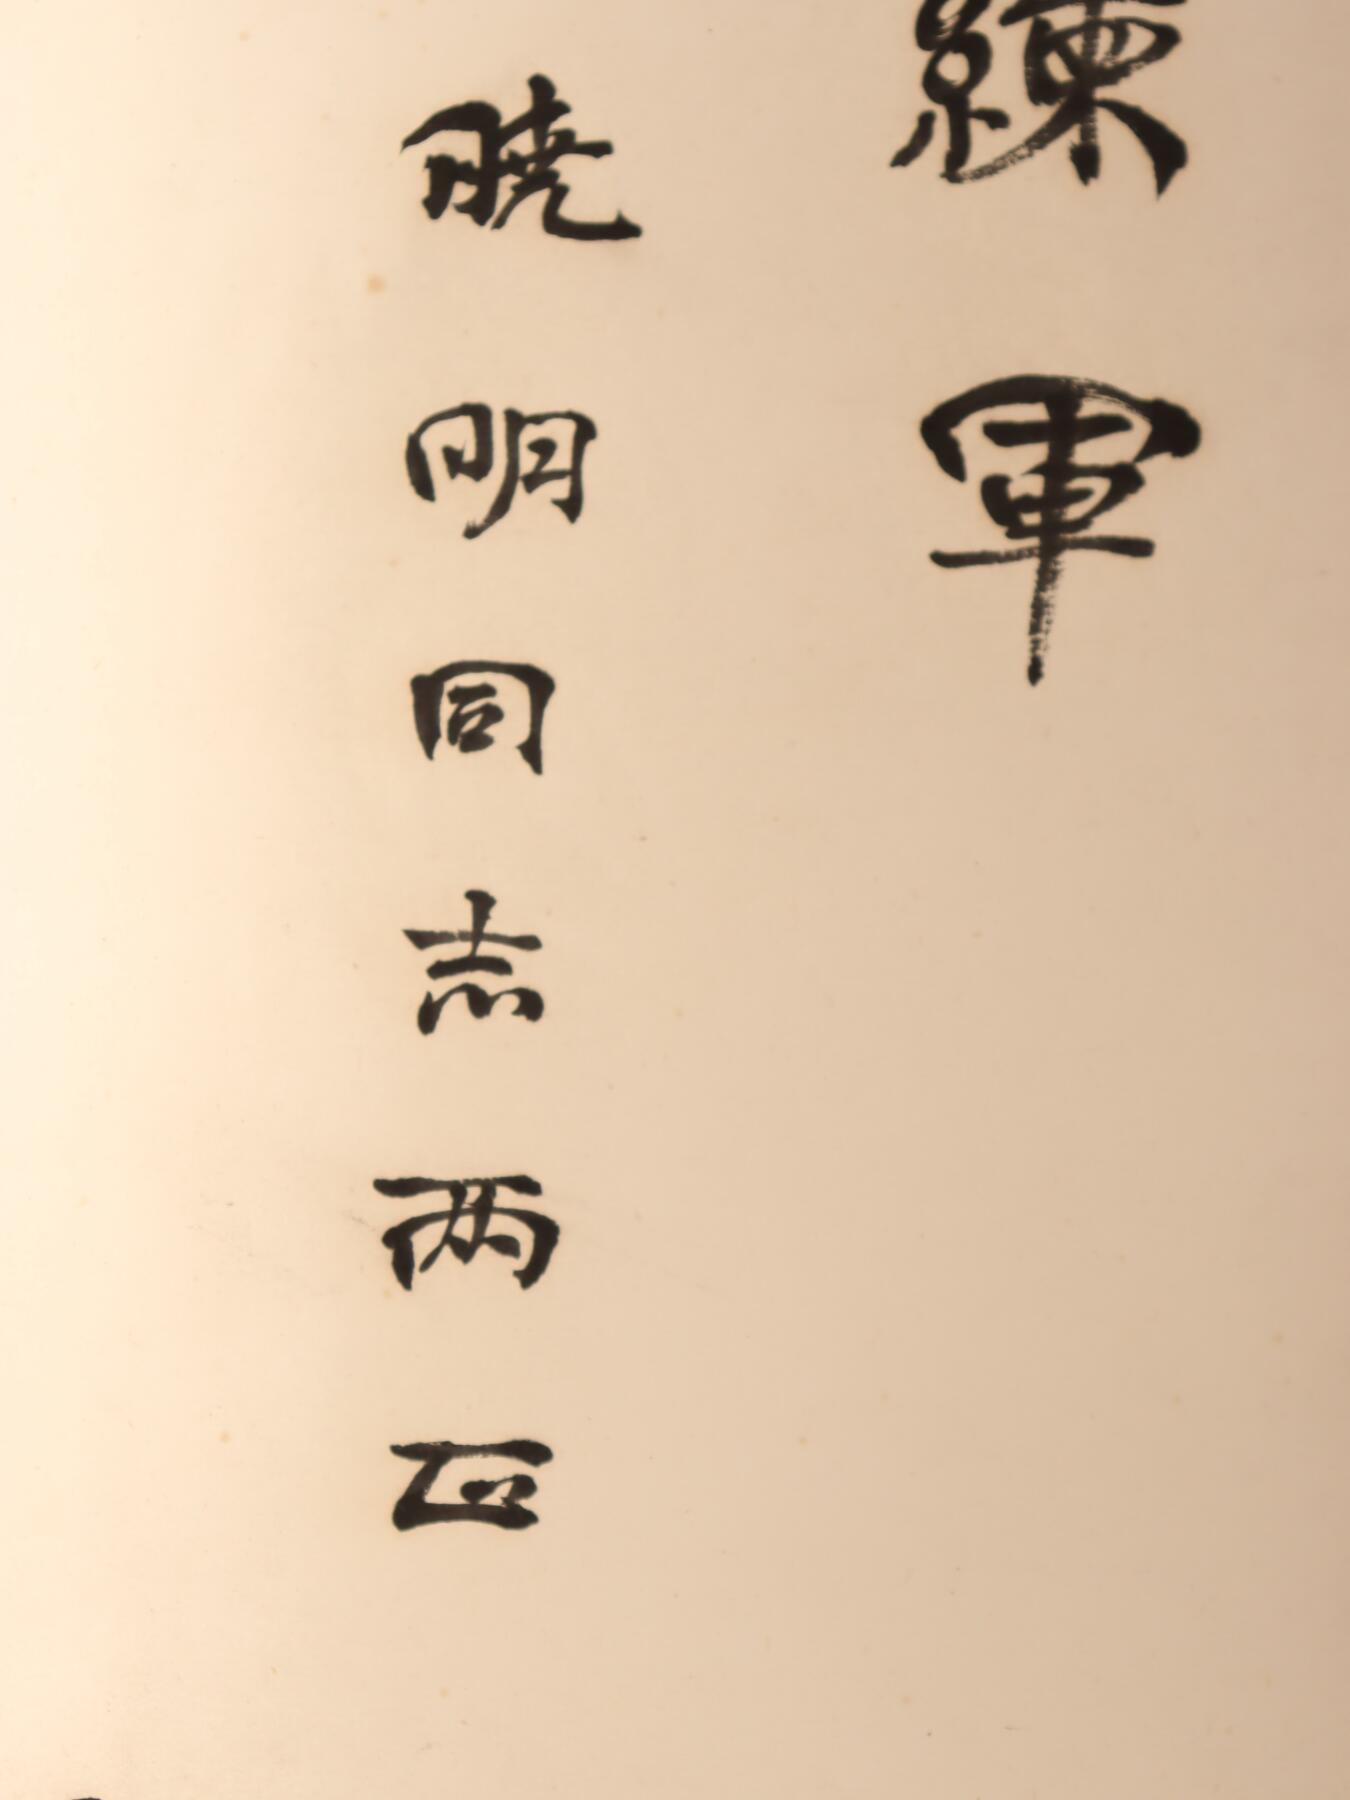 練軍
曉明同志兩正